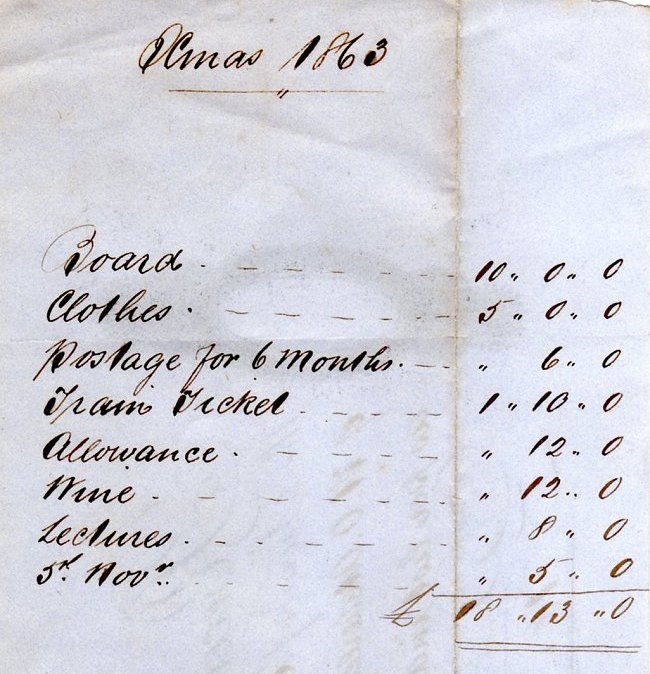 Xmas 1863
Board 10 " 0 " 0
Clothes 5 " 0 " 0
Postage for 6 Months " 6 " 0
Train Ticket 1 " 10 " 0
Allowance " 12 " 0
Wine " 12 " 0
Lectures " 8 " 0
5th Novr. " 5 " 0
£ 18 " 13 " 0